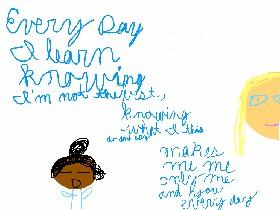 Every Day
I learn
knowing
I'm not the best,
knowing
what I this
do and say
makes
me me
only me
and I grow
every day